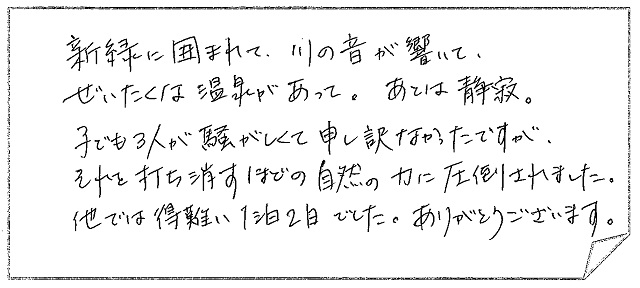 新緑に囲まれて、川の音が響いて、
ぜいたくな温泉があって。あとは静寂。
子ども3人が騒がしくて申し訳なかったですが、
それを打ち消すほどの自然の力に圧倒されました。
他では得難い1泊2日でした。ありがとうございます。